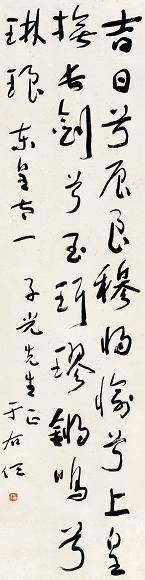 吉日兮辰良穆将愉兮上皇
撫长劍兮玉珥璆鏘鳴兮
琳琅 东皇太一 子光先生正 于右任